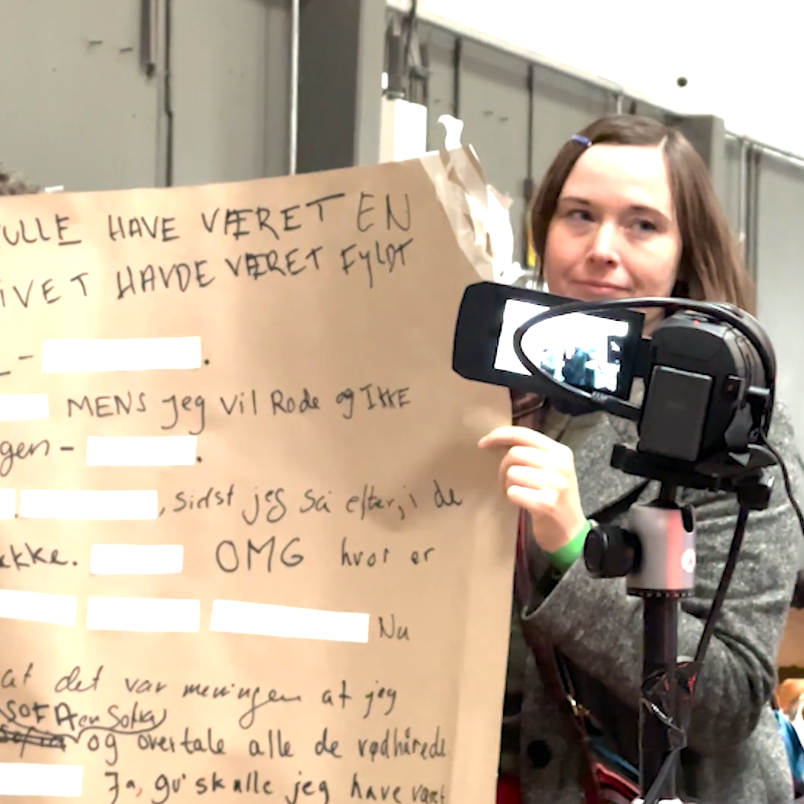 ULLE HAVE VÆRET EN
IVET HAVDE VÆRET FYLDT
– .
MENS jeg vil Rode og IKKE
gen – .
, sidst jeg så efter, i de
kke. OMG hvor er
Nu
at det var meningen at jeg
SOFA en Sofka
og overtale alle de rødhårede
Ja, gu' skulle jeg have været